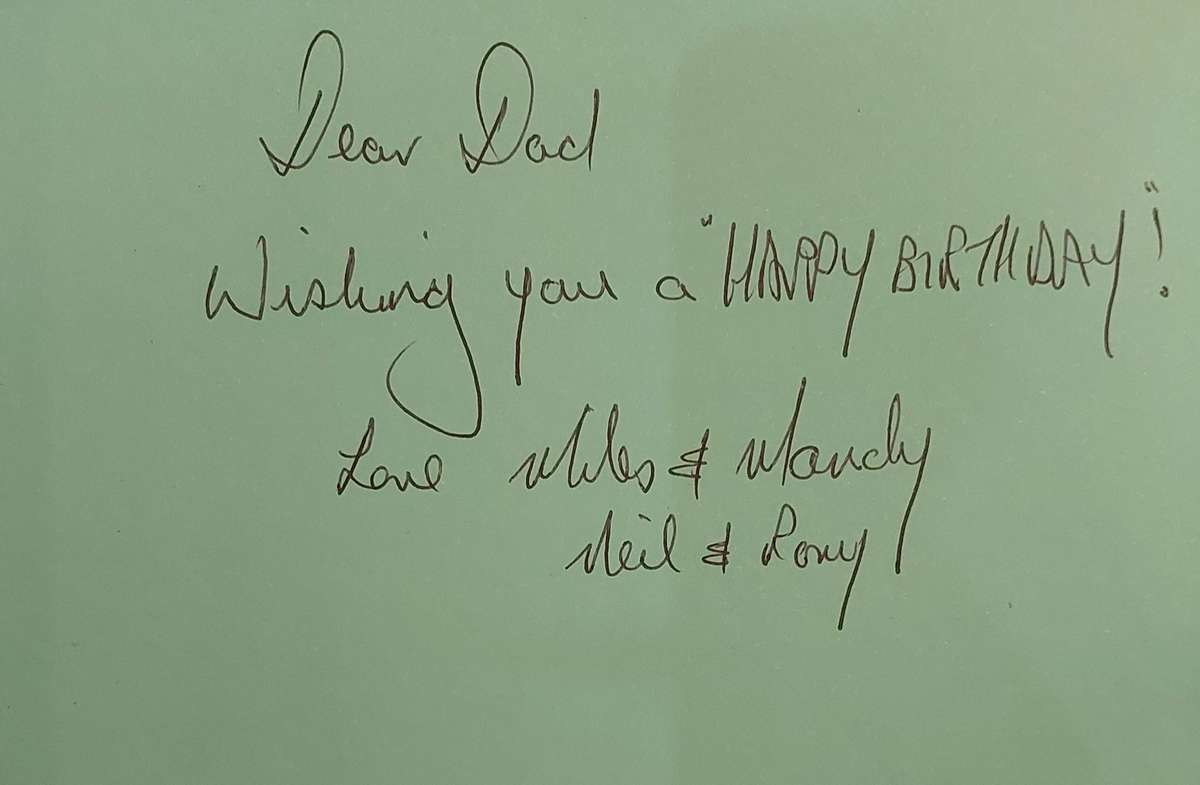 Dear Dad
Wishing you a "HAPPY BIRTHDAY"!
Love Miles & Mandy
Neil &